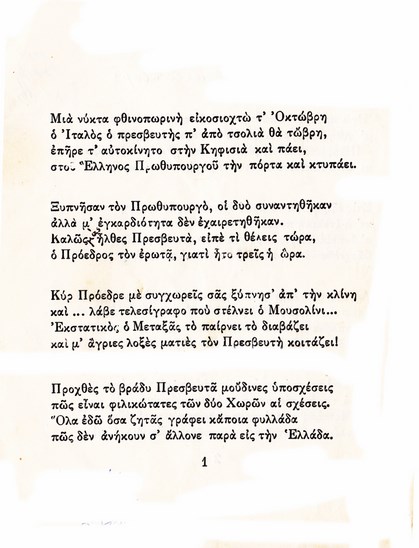 Μιὰ νύκτα φθινοπωρινὴ εἰκοσιοχτὼ τ' Ὀκτώβρη
ὁ Ἰταλὸς ὁ πρεσβευτὴς π' ἀπὸ τσολιὰ θὰ τὤβρη,
ἐπῆρε τ' αὐτοκίνητο στὴν Κηφισιὰ καὶ πάει,
στοῦ Ἕλληνος Πρωθυπουργοῦ τὴν πόρτα καὶ κτυπάει.
Ξυπνῆσαν τὸν Πρωθυπουργὸ, οἱ δυὸ συναντηθῆκαν
ἀλλὰ μ' ἐγκαρδιότητα δὲν ἐχαιρετηθῆκαν.
Καλῶς ἦλθες Πρεσβευτὰ, εἰπὲ τὶ θέλεις τώρα,
ὁ Πρόεδρος τὸν ἐρωτᾷ, γιατὶ ἦτο τρεῖς ἡ ὥρα.
Κὺρ Πρόεδρε μὲ συγχωρεῖς σᾶς ξύπνησ' ἀπ' τὴν κλίνη
καὶ ... λάβε τελεσίγραφο ποὺ στέλνει ὁ Μουσολίνι...
Ἐκστατικὸς ὁ Μεταξᾶς τὸ παίρνει τὸ διαβάζει
καὶ μ' ἄγριες λοξὲς ματιὲς τὸν Πρεσβευτὴ κοιτάζει!
Προχθὲς τὸ βράδυ Πρεσβευτᾶ μοὔδινες ὑποσχέσεις
πῶς εἶναι φιλικώτατες τῶν δύο Χωρῶν αἱ σχέσεις.
Ὅλα ἐδῶ ὅσα ζητᾶς γράφει κάποια φυλλάδα
πῶς δὲν ἀνήκουν σ' ἄλλονε παρὰ εἰς τὴν Ἑλλάδα.
1